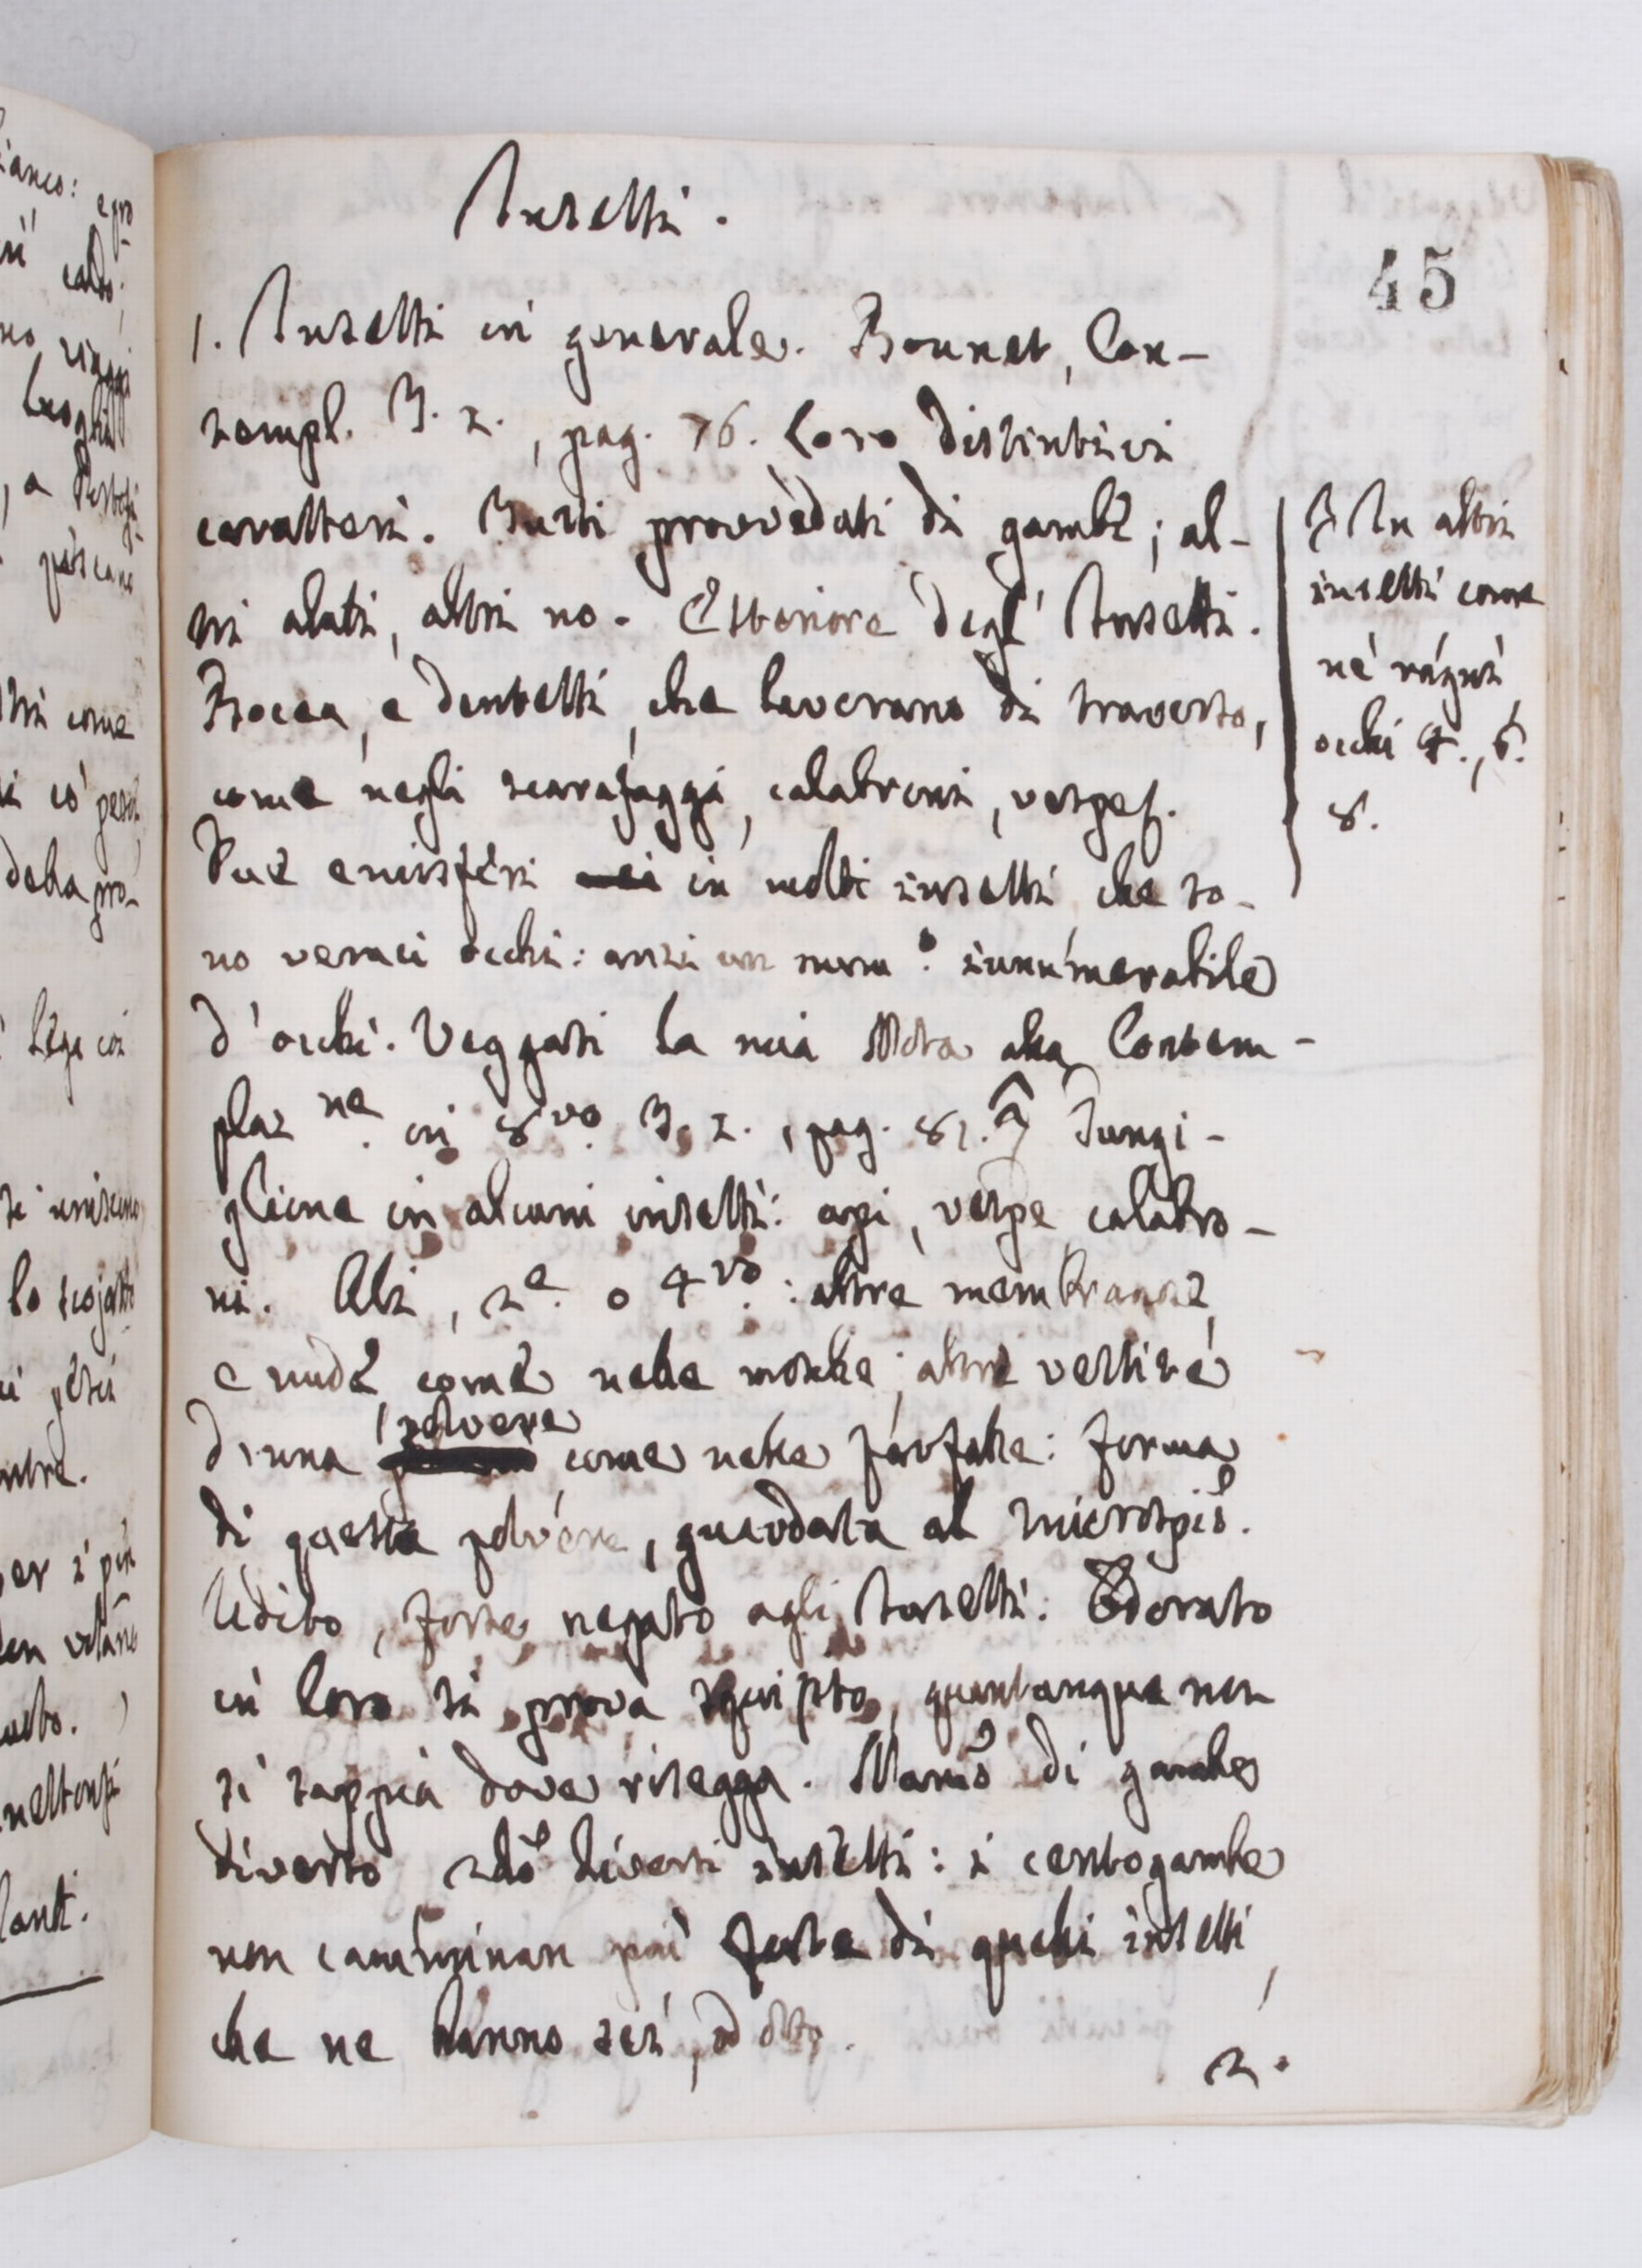 Insetti.
45
1. Insetti in generale. Bonnet, Con-
templ. T. 2., pag. 76. Loro distintivi
caratteri. Tutti provveduti di gambe; al-
tri alati, altri no. Esteriore degl' Insetti.
Bocca, e dentelli, che lavorano di traverso,
come negli scarafaggi, calabroni, vespe.
Due emisferi in molti insetti che so-
no veraci occhi: anzi un num.o innumerabile
d'occhi. Veggasi la mia Nota alla Contem-
plaz.ne in 8vo. T. 2., pag. 81. Pungi-
glione in alcuni insetti: api, vespe, calabro-
ni. Ali, 2e. o 4ro.: altre membranose,
e nude, come nelle mosche; altre vestite
d'una polvere come nelle farfalle: forma
di questa polvere, guardata al microspio.
Udito, forse negato agli Insetti. Odorato
in loro si prova squisito, quantunque non
si sappia dove risegga. Numo di gambe
diverso sdo diversi insetti: i centogambe
non camminan più forte di quelli insetti,
che ne hanno sei, od otto.
2.
In altri
insetti come
ne' ragni
occhi 4., 6.
8.